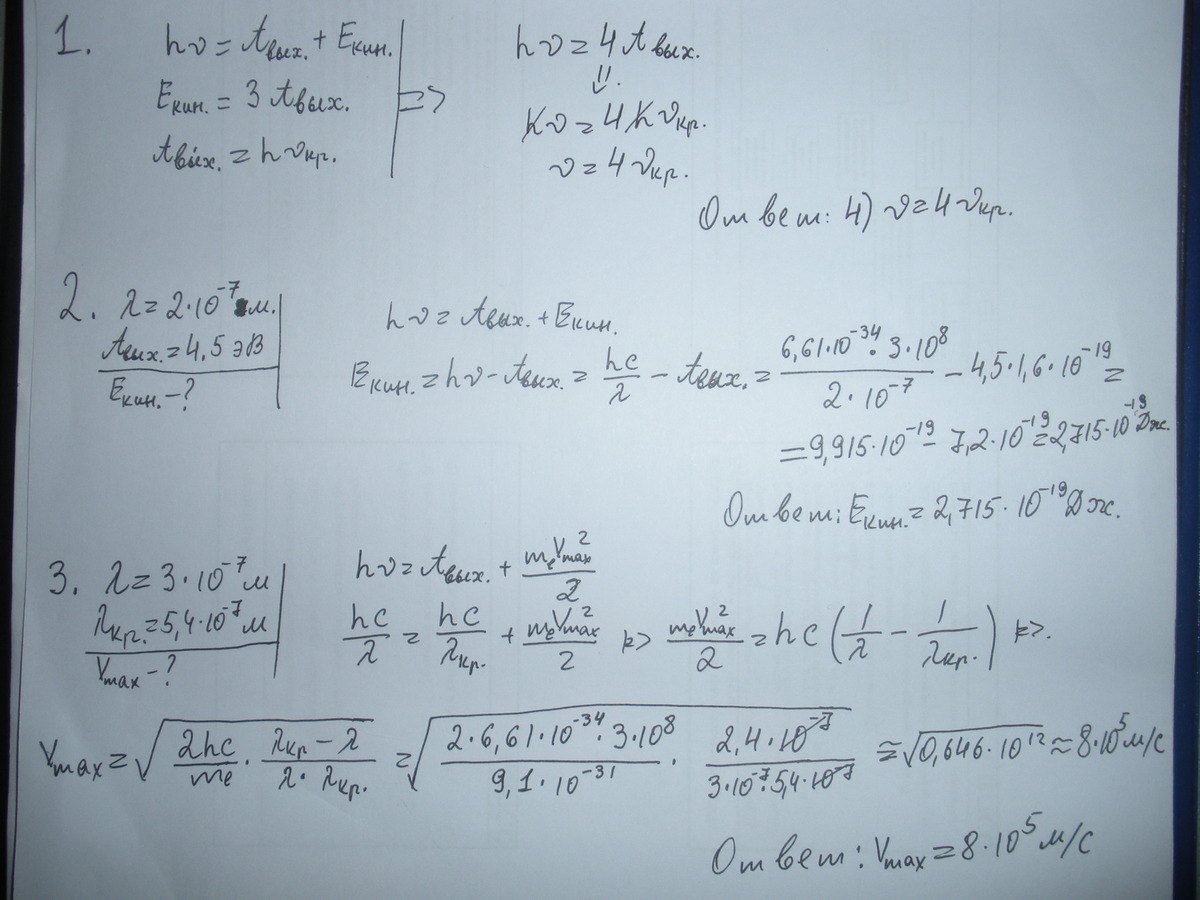 1. hν = Aвых. + Eкин.
Eкин. = 3 Aвых.
Aвых. = hνкр.
=>
hν = 4 Aвых.
⇓.
hν = 4 hνкр.
ν = 4 νкр.
Ответ: 4) ν = 4 νкр.
2. λ = 2·10⁻⁷ м.
Aвых. = 4,5 эВ
Eкин. - ?
hν = Aвых. + Eкин.
Eкин. = hν - Aвых. = hc/λ - Aвых. = (6,61·10⁻³⁴·3·10⁸)/(2·10⁻⁷) - 4,5·1,6·10⁻¹⁹ =
= 9,915·10⁻¹⁹ - 7,2·10⁻¹⁹ = 2,715·10⁻¹⁹ Дж.
Ответ: Eкин. = 2,715·10⁻¹⁹ Дж.
3. λ = 3·10⁻⁷ м
λкр. = 5,4·10⁻⁷ м
Vmax - ?
hν = Aвых. + meVmax²/2
hc/λ = hc/λкр. + meVmax²/2 => meVmax²/2 = hc (1/λ - 1/λкр.) =>.
Vmax = √(2hc/me · (λкр - λ)/(λ·λкр.)) = √((2·6,61·10⁻³⁴·3·10⁸)/(9,1·10⁻³¹) · (2,4·10⁻⁷)/(3·10⁻⁷·5,4·10⁻⁷)) ≈ √(0,646·10¹²) ≈ 8·10⁵ м/с
Ответ: Vmax = 8·10⁵ м/с